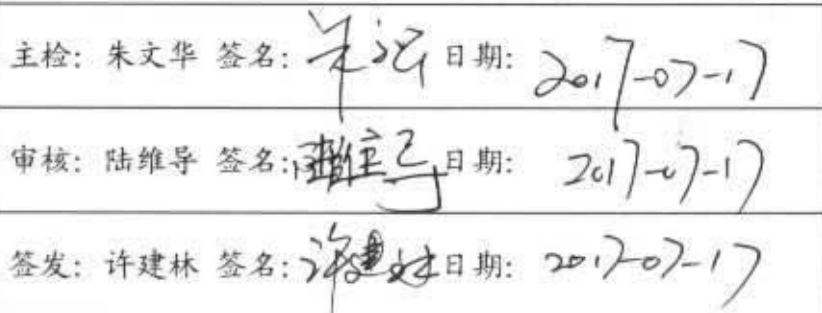 主检: 朱文华 签名: 日期: 2017-07-17
审核: 陆维导 签名: 陆维导 日期: 2017-07-17
签发: 许建林 签名: 许建林 日期: 2017-07-17